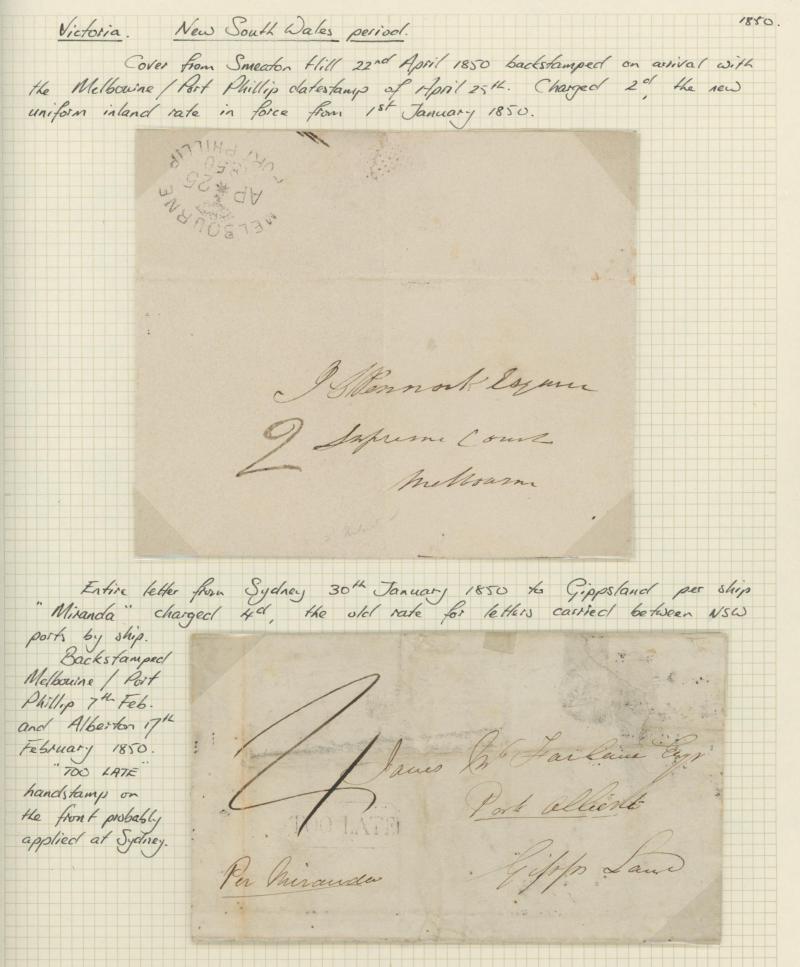 1850.
Victoria. New South Wales period.
Cover from Smeaton Hill 22nd April 1850 backstamped on arrival with
the Melbourne / Port Phillip datestamp of April 25th. Charged 2d, the new
uniform inland rate in force from 1st January 1850.
MELBOURNE PORT PHILLIP
AP * 25
1850
Esquire
2 Supreme Court
Melbourne
Entire letter from Sydney 30th January 1850 to Gippsland per ship
"Miranda" charged 4d, the old rate for letters carried between NSW
ports by ship.
Backstamped
Melbourne / Port
Phillip 7th Feb.
and Alberton 17th
February 1850.
"TOO LATE"
handstamp on
the front probably
applied at Sydney.
4
James Mc Farlane Esqr
Port Albert
TOO LATE
Gipps Land
Per Miranda